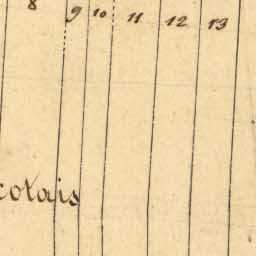 8 9 10 11 12 13
colais